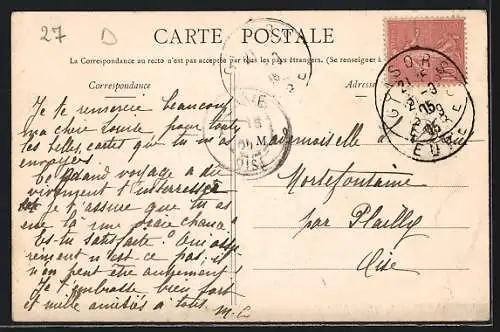 27 D
CARTE POSTALE
La Correspondance au recto n'est pas acceptée par tous les pays étrangers. (Se renseigner à
Correspondance
Adresse
GISORS
EURE
OISE
Je te remercie beaucoup,
ma chère Lourde pour toutes
les belles cartes que tu m'as
envoyées.
Ce grand voyage a dû
vivement t'intéresser
je t'assure que tu as
eue là une vraie chance!
Es-tu satisfaite? Oui assu-
rément n'est ce pas; il
n'en peut être autrement!
Je t'embrasse bien fort
et mille amitiés à tous.
Mademoiselle
Mortefontaine
par Plailly
Oise